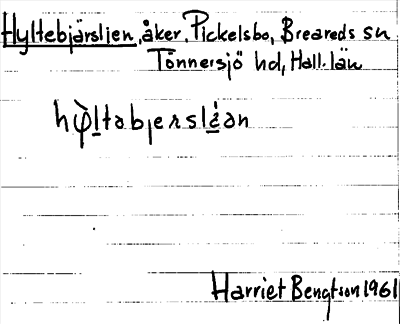 Hyltebjärslien, åker, Pickelsbo, Breareds sn
Tönnersjö hd, Hall. län
hø̀ltabjerslèan
Harriet Bengtson 1961